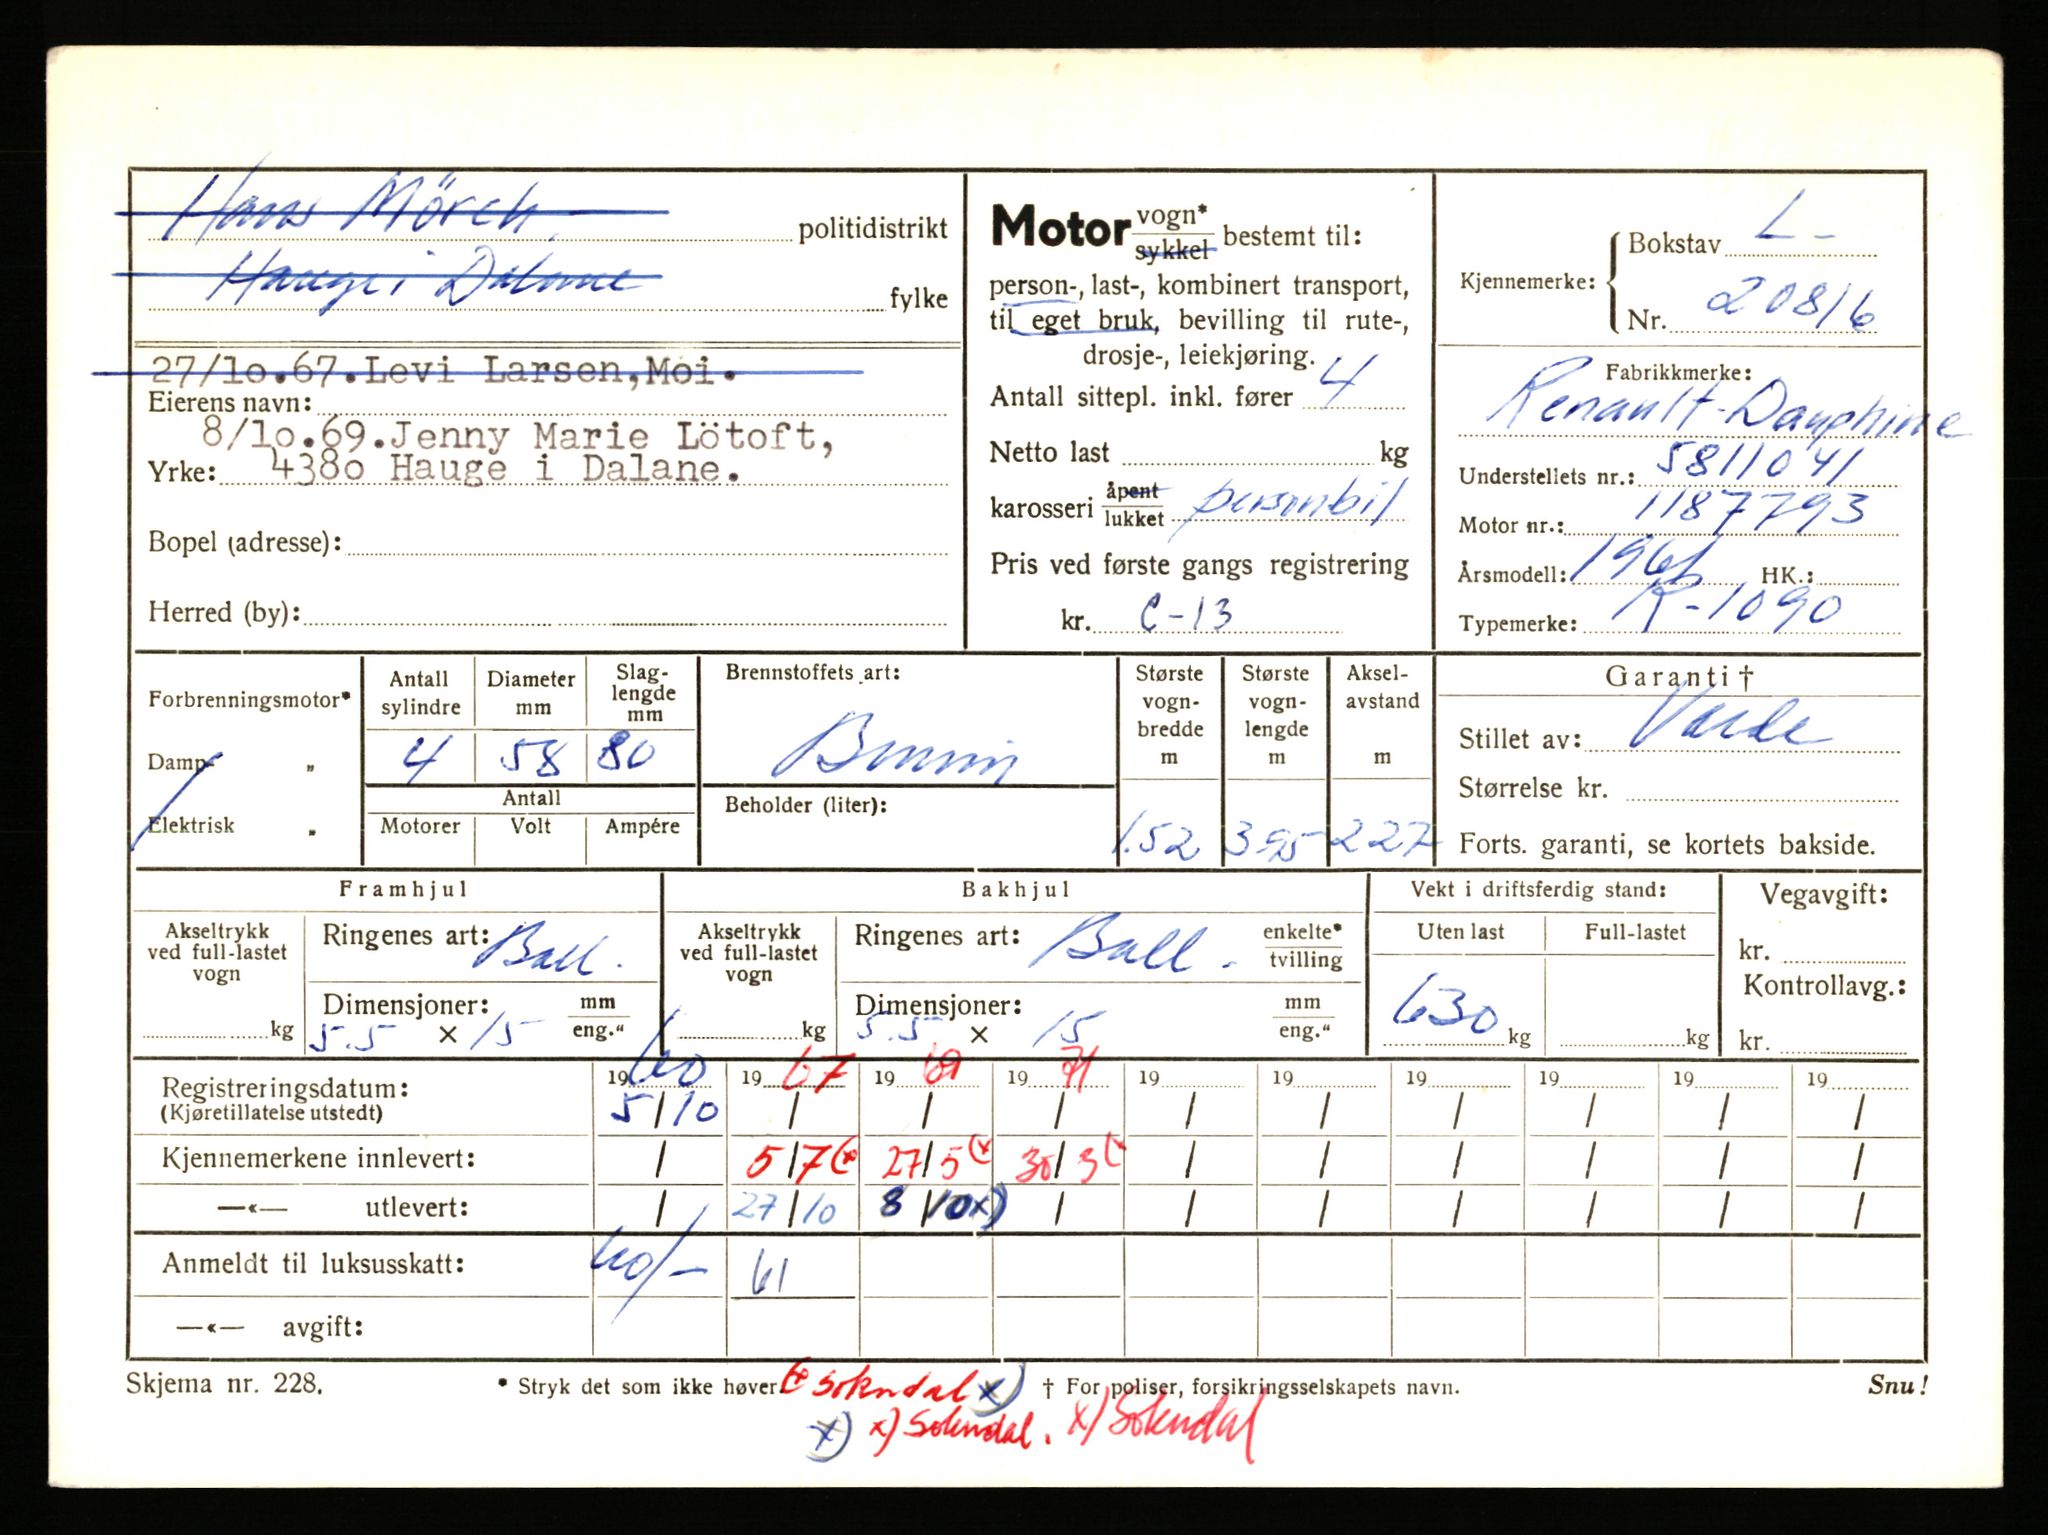 Hans Mörch politidistrikt
Hauge i Dalane fylke
27/1o.67.Levi Larsen,Moi.
Eierens navn:
8/1o.69.Jenny Marie Lötoft,
Yrke: 438o Hauge i Dalane.
Bopel (adresse):
Herred (by):
Motor vogn* sykkel bestemt til:
person-, last-, kombinert transport,
til eget bruk, bevilling til rute-,
drosje-, leiekjøring.
Antall sittepl. inkl. fører 4
Netto last kg
karosseri åpent lukket personbil
Pris ved første gangs registrering
kr. C-13
Kjennemerke: Bokstav L-
Nr. 20816
Fabrikkmerke:
Renault-Dauphine
Understellets nr.: 5811041
Motor nr.: 1187793
Årsmodell: HK.:
Typemerke: R-1090
Forbrenningsmotor*
Damp- „
Elektrisk „
Antall sylindre Diameter mm Slag-lengde mm
4 58 80
Antall
Motorer Volt Ampére
Brennstoffets art:
Bensin
Beholder (liter):
Største vogn-bredde m Største vogn-lengde m Aksel-avstand m
1.52 395 227
Garanti †
Stillet av:
Størrelse kr.
Forts. garanti, se kortets bakside.
Framhjul
Akseltrykk ved full-lastet vogn kg
Ringenes art: Ball.
Dimensjoner: mm eng."
5.5 × 15
Bakhjul
Akseltrykk ved full-lastet vogn kg
Ringenes art: Ball. enkelte* tvilling
Dimensjoner: mm eng."
5.5 × 15
Vekt i driftsferdig stand:
Uten last Full-lastet
630 kg kg
Vegavgift:
kr.
Kontrollavg.:
kr.
60
Registreringsdatum: 19 60 19 67 19 69 19 71 19 19 19 19 19 19
(Kjøretillatelse utstedt) 5/10 / / / / / / / / /
Kjennemerkene innlevert: / 5/7 (* 27/5 (x 30/3 (x / / / / / /
—«— utlevert: / 27/10 8/10 x) / / / / / / /
Anmeldt til luksusskatt: 60/- 61
—«— avgift:
Skjema nr. 228. * Stryk det som ikke høver. (* Sokndal x) † For poliser, forsikringsselskapets navn. Snu!
x) x) Sokndal. x) Sokndal